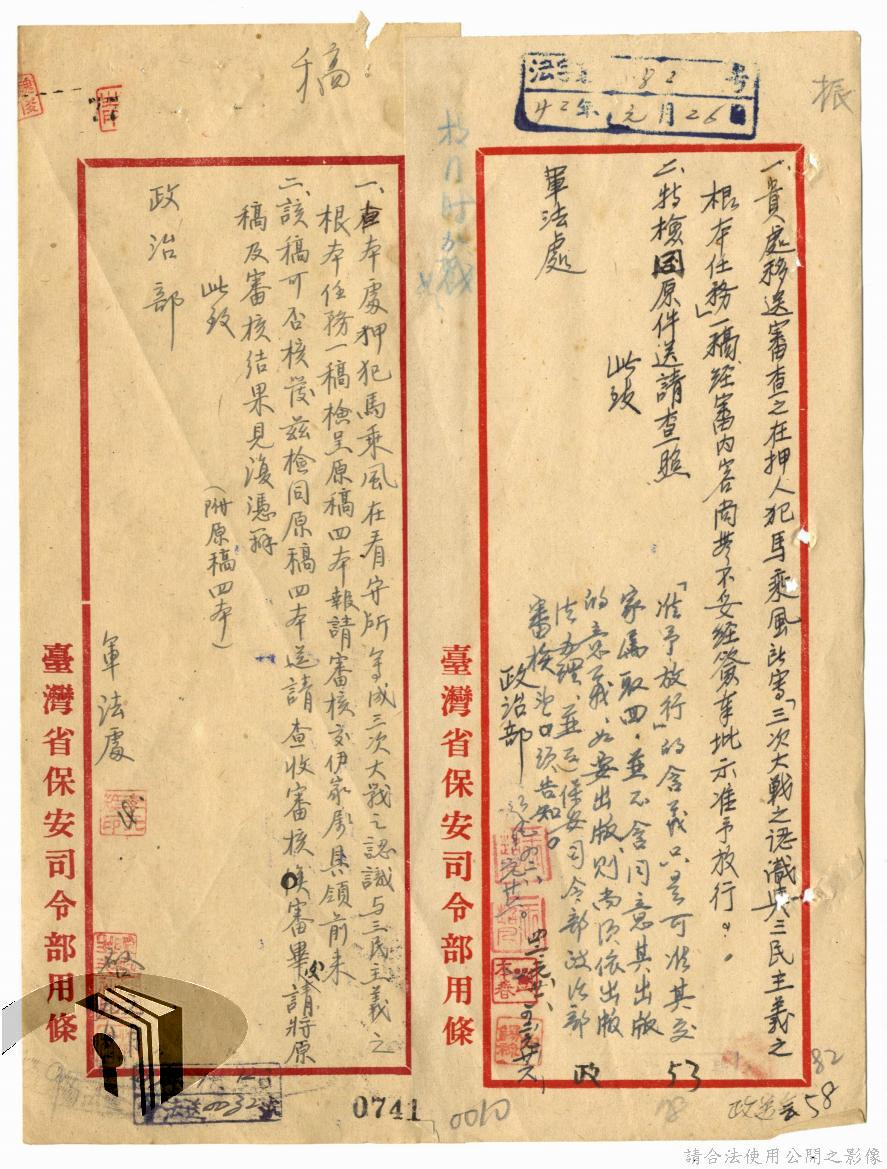 振
法字第 82 号
42年元月26日
一、貴處移送審查之在押人犯馬乘風所寫「三次大戰之認識與三民主義之
根本任務」一稿、經審內容尚無不妥經簽奉批示准予放行。
二、特檢同原件送請查照
此致
軍法處
「准予放行」的含義只是可准其交
家屬取回，並不含同意其出版
的意義，如要出版，則尚須依出版
法辦理，並送保安司令部政治部
審核。
政治部
本春
政
53
82
政送 58
臺灣省保安司令部用條
稿
一、查本處押犯馬乘風在看守所寫成三次大戰之認識与三民主義之
根本任務一稿檢呈原稿四本報請審核交伊家屬具領前來
二、該稿可否核發茲檢同原稿四本送請查收審核俟審畢後請將原
稿及審核結果見復憑辦
此致
(附原稿四本)
政治部
軍法處
臺灣省保安司令部用條
法送0032號
0741
0010
請合法使用公開之影像